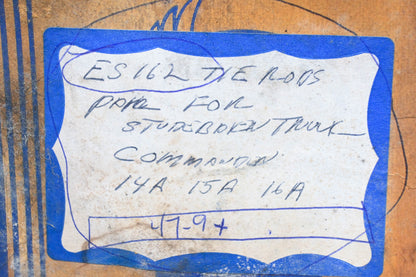 ES16L TIE RODS
PAIR FOR
STUDEBAKEN TRUCK
COMMANDON
14A 15A 16A
47-9+